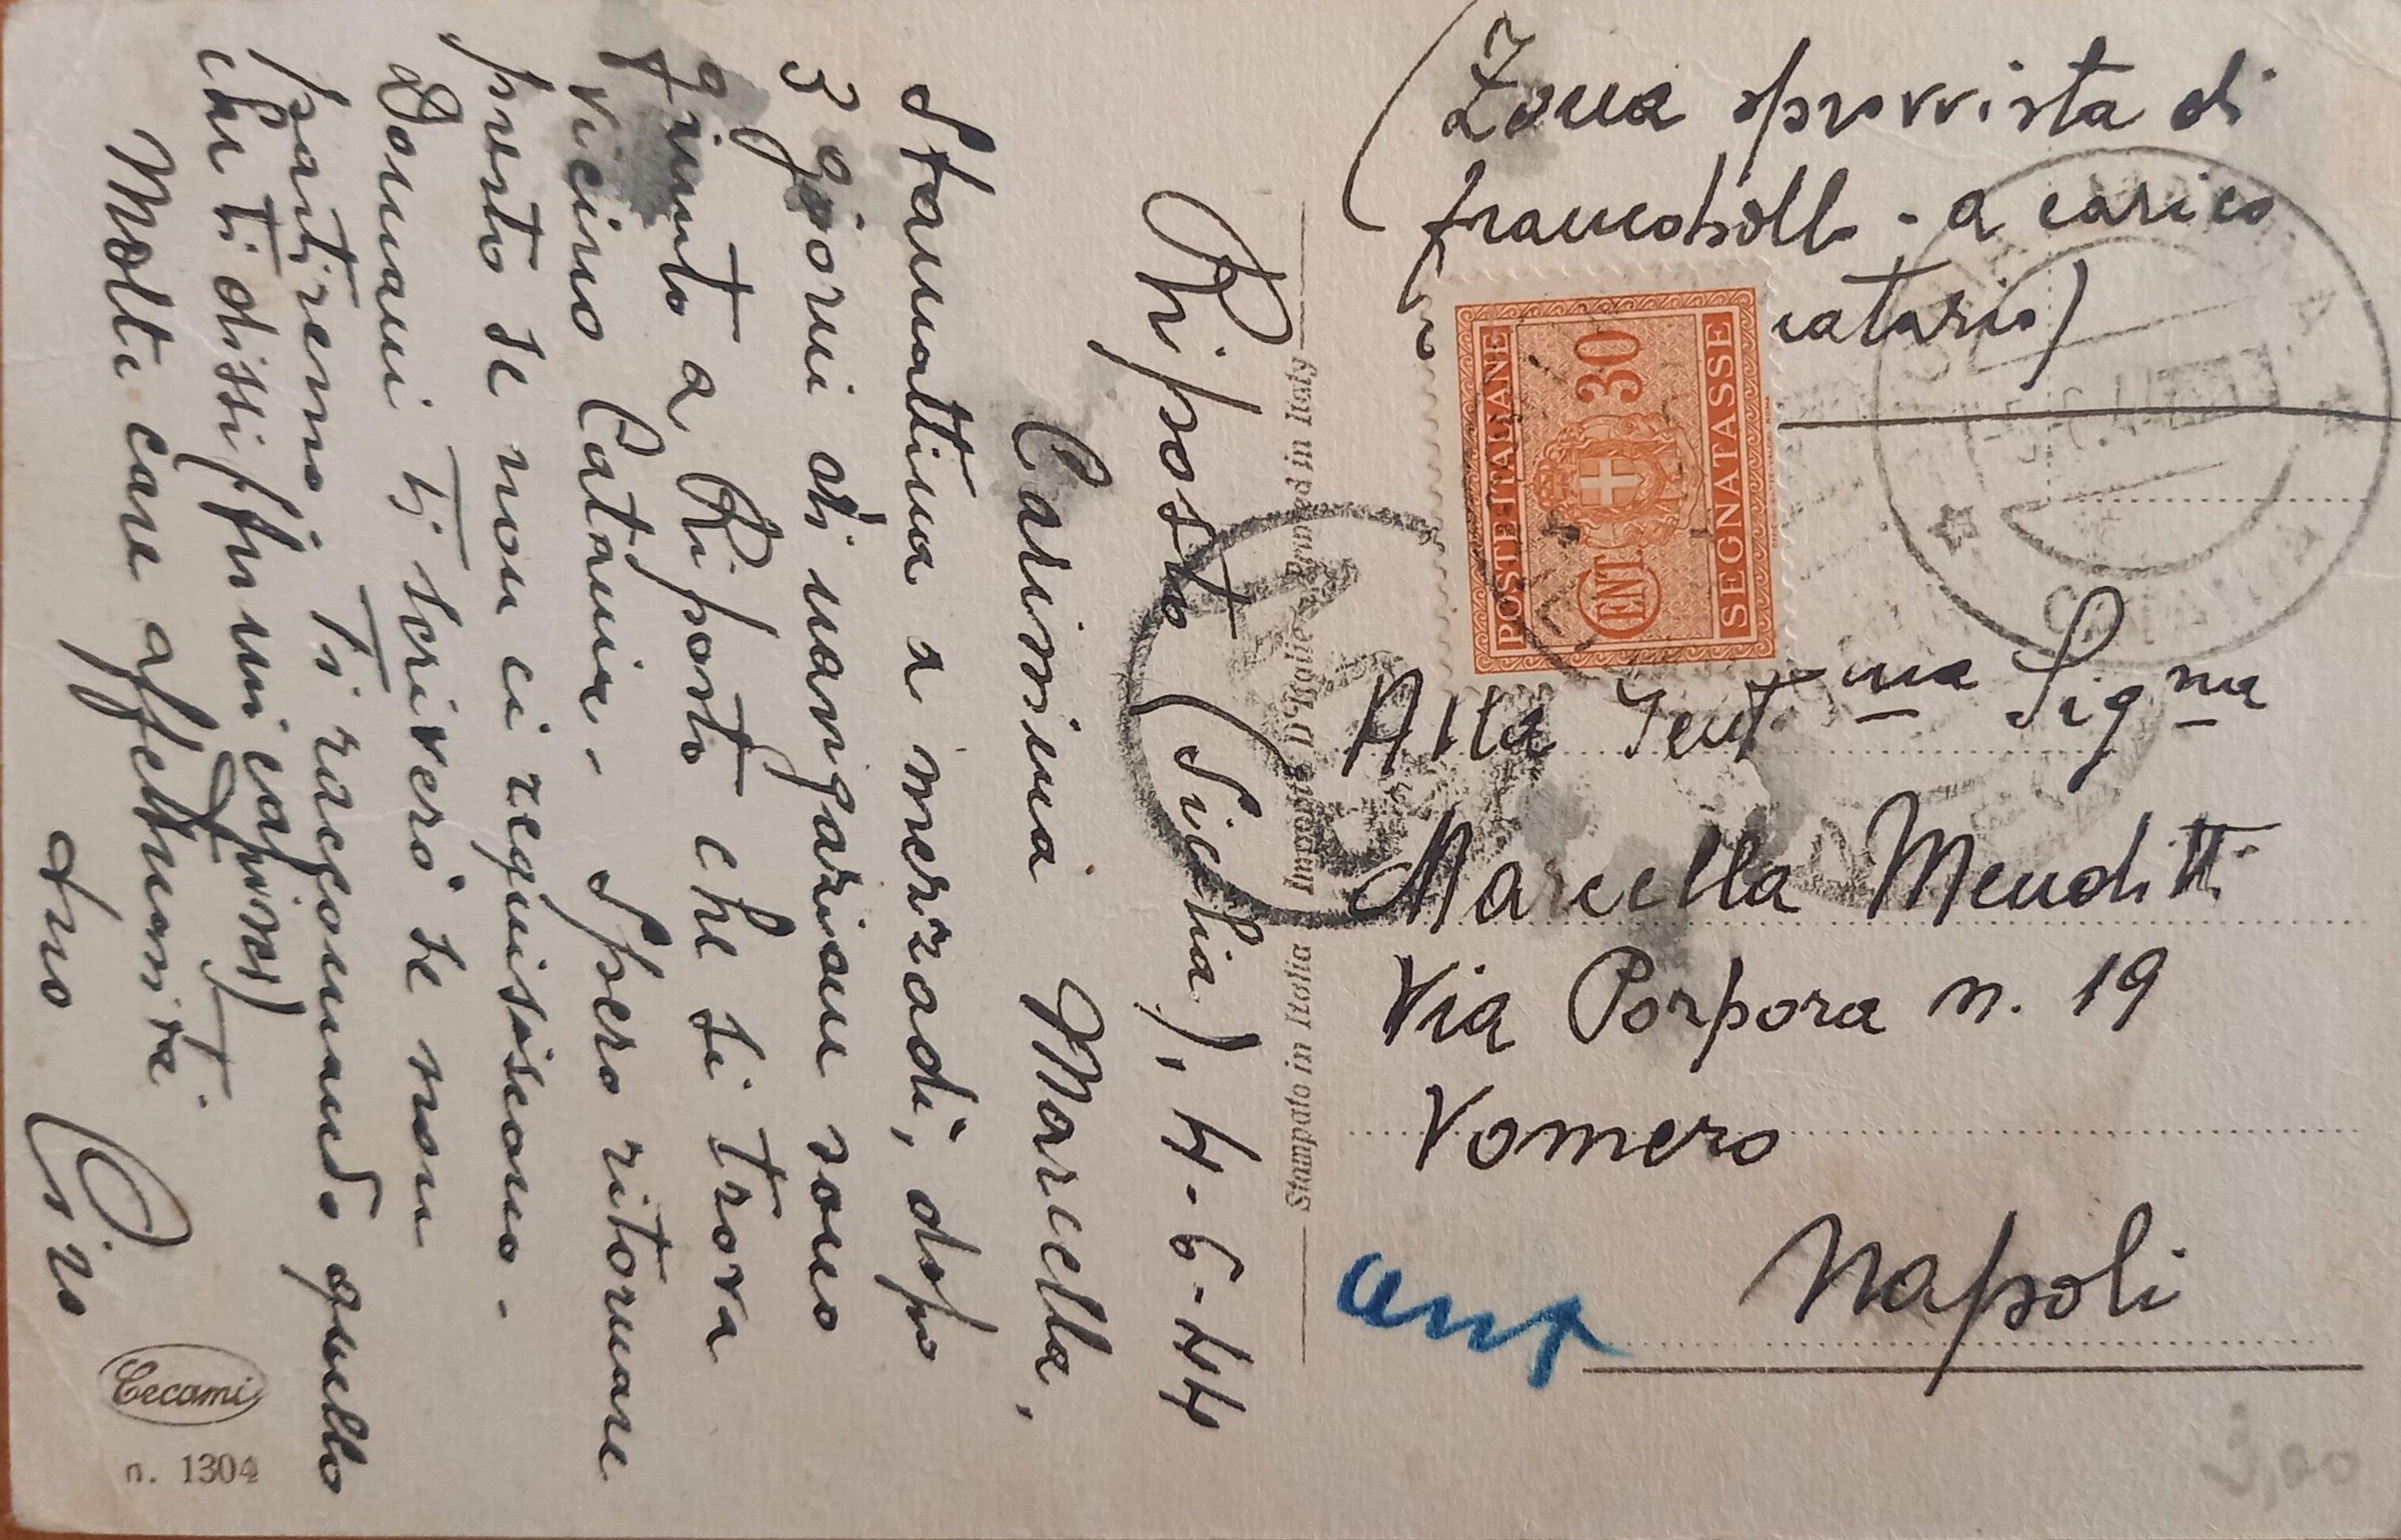 Riposto (Sicilia), 4-6-44
Carissima Marcella,
Stamattina a mezzodì, dopo
3 giorni di navigazione sono
giunto a Riposto che si trova
vicino Catania. Spero ritornare
presto se non ci requisiscono.
Domani ti scriverò se non
partiremo. Ti raccomando quello
che ti dissi
Molte care affettuosità
tuo Ciro
Cecami
n. 1304
Stampato in Italia Imprimé d'Italie Printed in Italy
(Zona sprovvista di
francobolli - a carico
POSTE ITALIANE
CENT 30
SEGNATASSE
Alta Gent.ma Sig.na
Marcella Menditti
Via Porpora n. 19
Vomero
Napoli